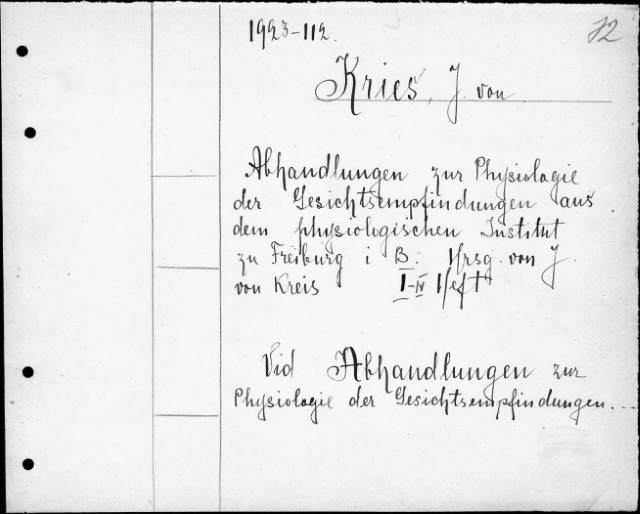 1923-112.
72
Kries, J. von
Abhandlungen zur Physiologie
der Gesichtsempfindungen aus
dem physiologischen Institut
zu Freiburg i B. Hrsg. von J.
von Kreis I-IV Heft
Vid Abhandlungen zur
Physiologie der Gesichtsempfindungen...